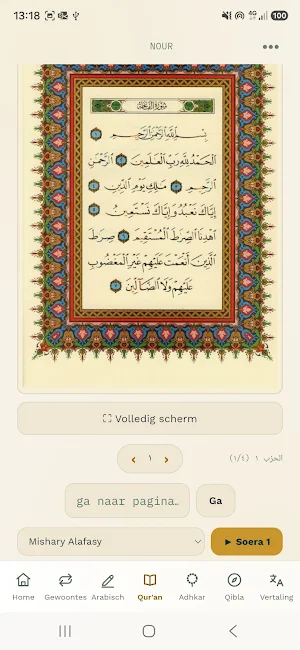 13:18
4G
100
NOUR
سورة الفاتحة
بِسْمِ اللَّهِ الرَّحْمَٰنِ الرَّحِيمِ ١
الْحَمْدُ لِلَّهِ رَبِّ الْعَالَمِينَ ٢ الرَّحْمَٰنِ
الرَّحِيمِ ٣ مَالِكِ يَوْمِ الدِّينِ ٤
إِيَّاكَ نَعْبُدُ وَإِيَّاكَ نَسْتَعِينُ ٥
اهْدِنَا الصِّرَاطَ الْمُسْتَقِيمَ ٦ صِرَاطَ
الَّذِينَ أَنْعَمْتَ عَلَيْهِمْ غَيْرِ الْمَغْضُوبِ
عَلَيْهِمْ وَلَا الضَّالِّينَ ٧
Volledig scherm
‹ ١ ›
الحزب ١ (١/٤)
ga naar pagina…
Ga
Mishary Alafasy
► Soera 1
Home
Gewoontes
Arabisch
Qur'an
Adhkar
Qibla
Vertaling